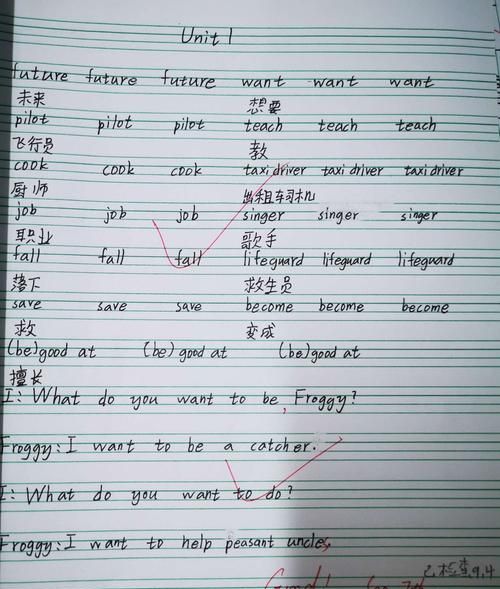 Unit 1
future future future want want want
未来 想要
pilot pilot pilot teach teach teach
飞行员 教
cook cook cook taxi driver taxi driver taxi driver
厨师 出租车司机
job job job singer singer singer
职业 歌手
fall fall fall lifeguard lifeguard lifeguard
落下 救生员
save save save become become become
救 变成
(be)good at (be)good at (be)good at
擅长
I: What do you want to be, Froggy?
Froggy: I want to be a catcher.
I: What do you want to do?
Froggy: I want to help peasant uncles.
已检查 9.4
Good!